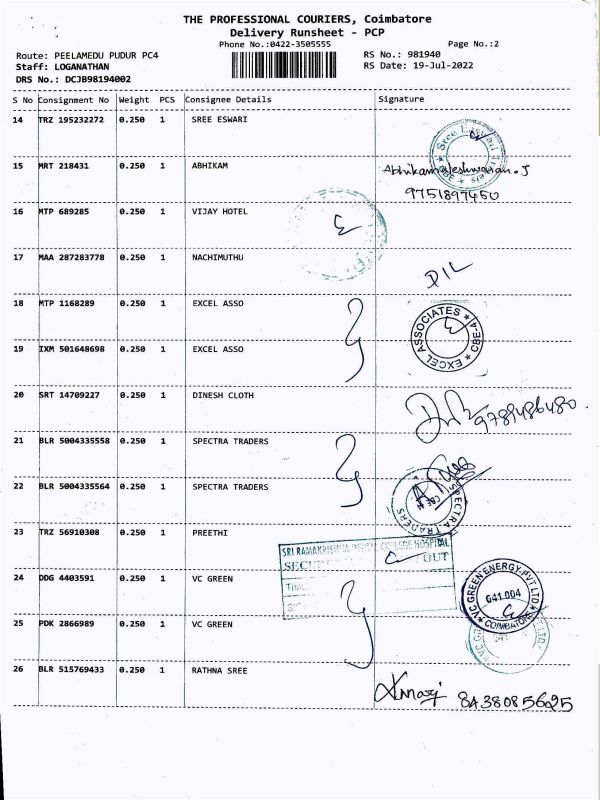 THE PROFESSIONAL COURIERS, Coimbatore
Delivery Runsheet - PCP
Phone No.:0422-3505555 Page No.:2
Route: PEELAMEDU PUDUR PC4 RS No.: 981940
Staff: LOGANATHAN RS Date: 19-Jul-2022
DRS No.: DCJB98194002
S No Consignment No Weight PCS Consignee Details Signature
14 TRZ 195232272 0.250 1 SREE ESWARI
Sree Eswari
15 MRT 218431 0.250 1 ABHIKAM
9751897450
16 MTP 689285 0.250 1 VIJAY HOTEL
17 MAA 287283778 0.250 1 NACHIMUTHU
DIL
18 MTP 1168289 0.250 1 EXCEL ASSO
EXCEL ASSOCIATES ★ CBE-4 ★
19 IXM 501648698 0.250 1 EXCEL ASSO
20 SRT 14709227 0.250 1 DINESH CLOTH
9789486480
21 BLR 5004335558 0.250 1 SPECTRA TRADERS
22 BLR 5004335564 0.250 1 SPECTRA TRADERS
SPECTRA TRADERS
23 TRZ 56910308 0.250 1 PREETHI
SRI RAMAKRISHNA DENTAL COLLEGE HOSPITAL
OUT
TIME
24 DDG 4403591 0.250 1 VC GREEN
VC GREEN ENERGY PVT LTD
641 004
COIMBATORE
25 PDK 2866989 0.250 1 VC GREEN
26 BLR 515769433 0.250 1 RATHNA SREE
8438085625